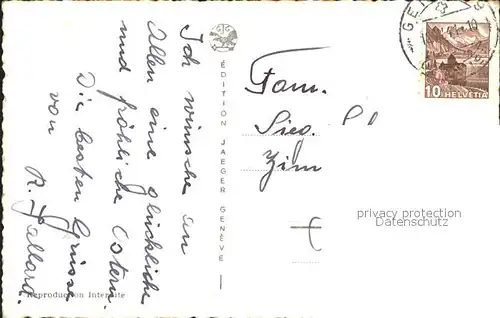 Ich wünsche an
Allen eine glückliche
und fröhliche Ostern.
Die besten Grüsse
von
R. Jallard.
ÉDITION JAEGER GENÈVE
Reproduction Interdite
Fam.
Sieg.
Zim
10 HELVETIA
privacy protection
Datenschutz